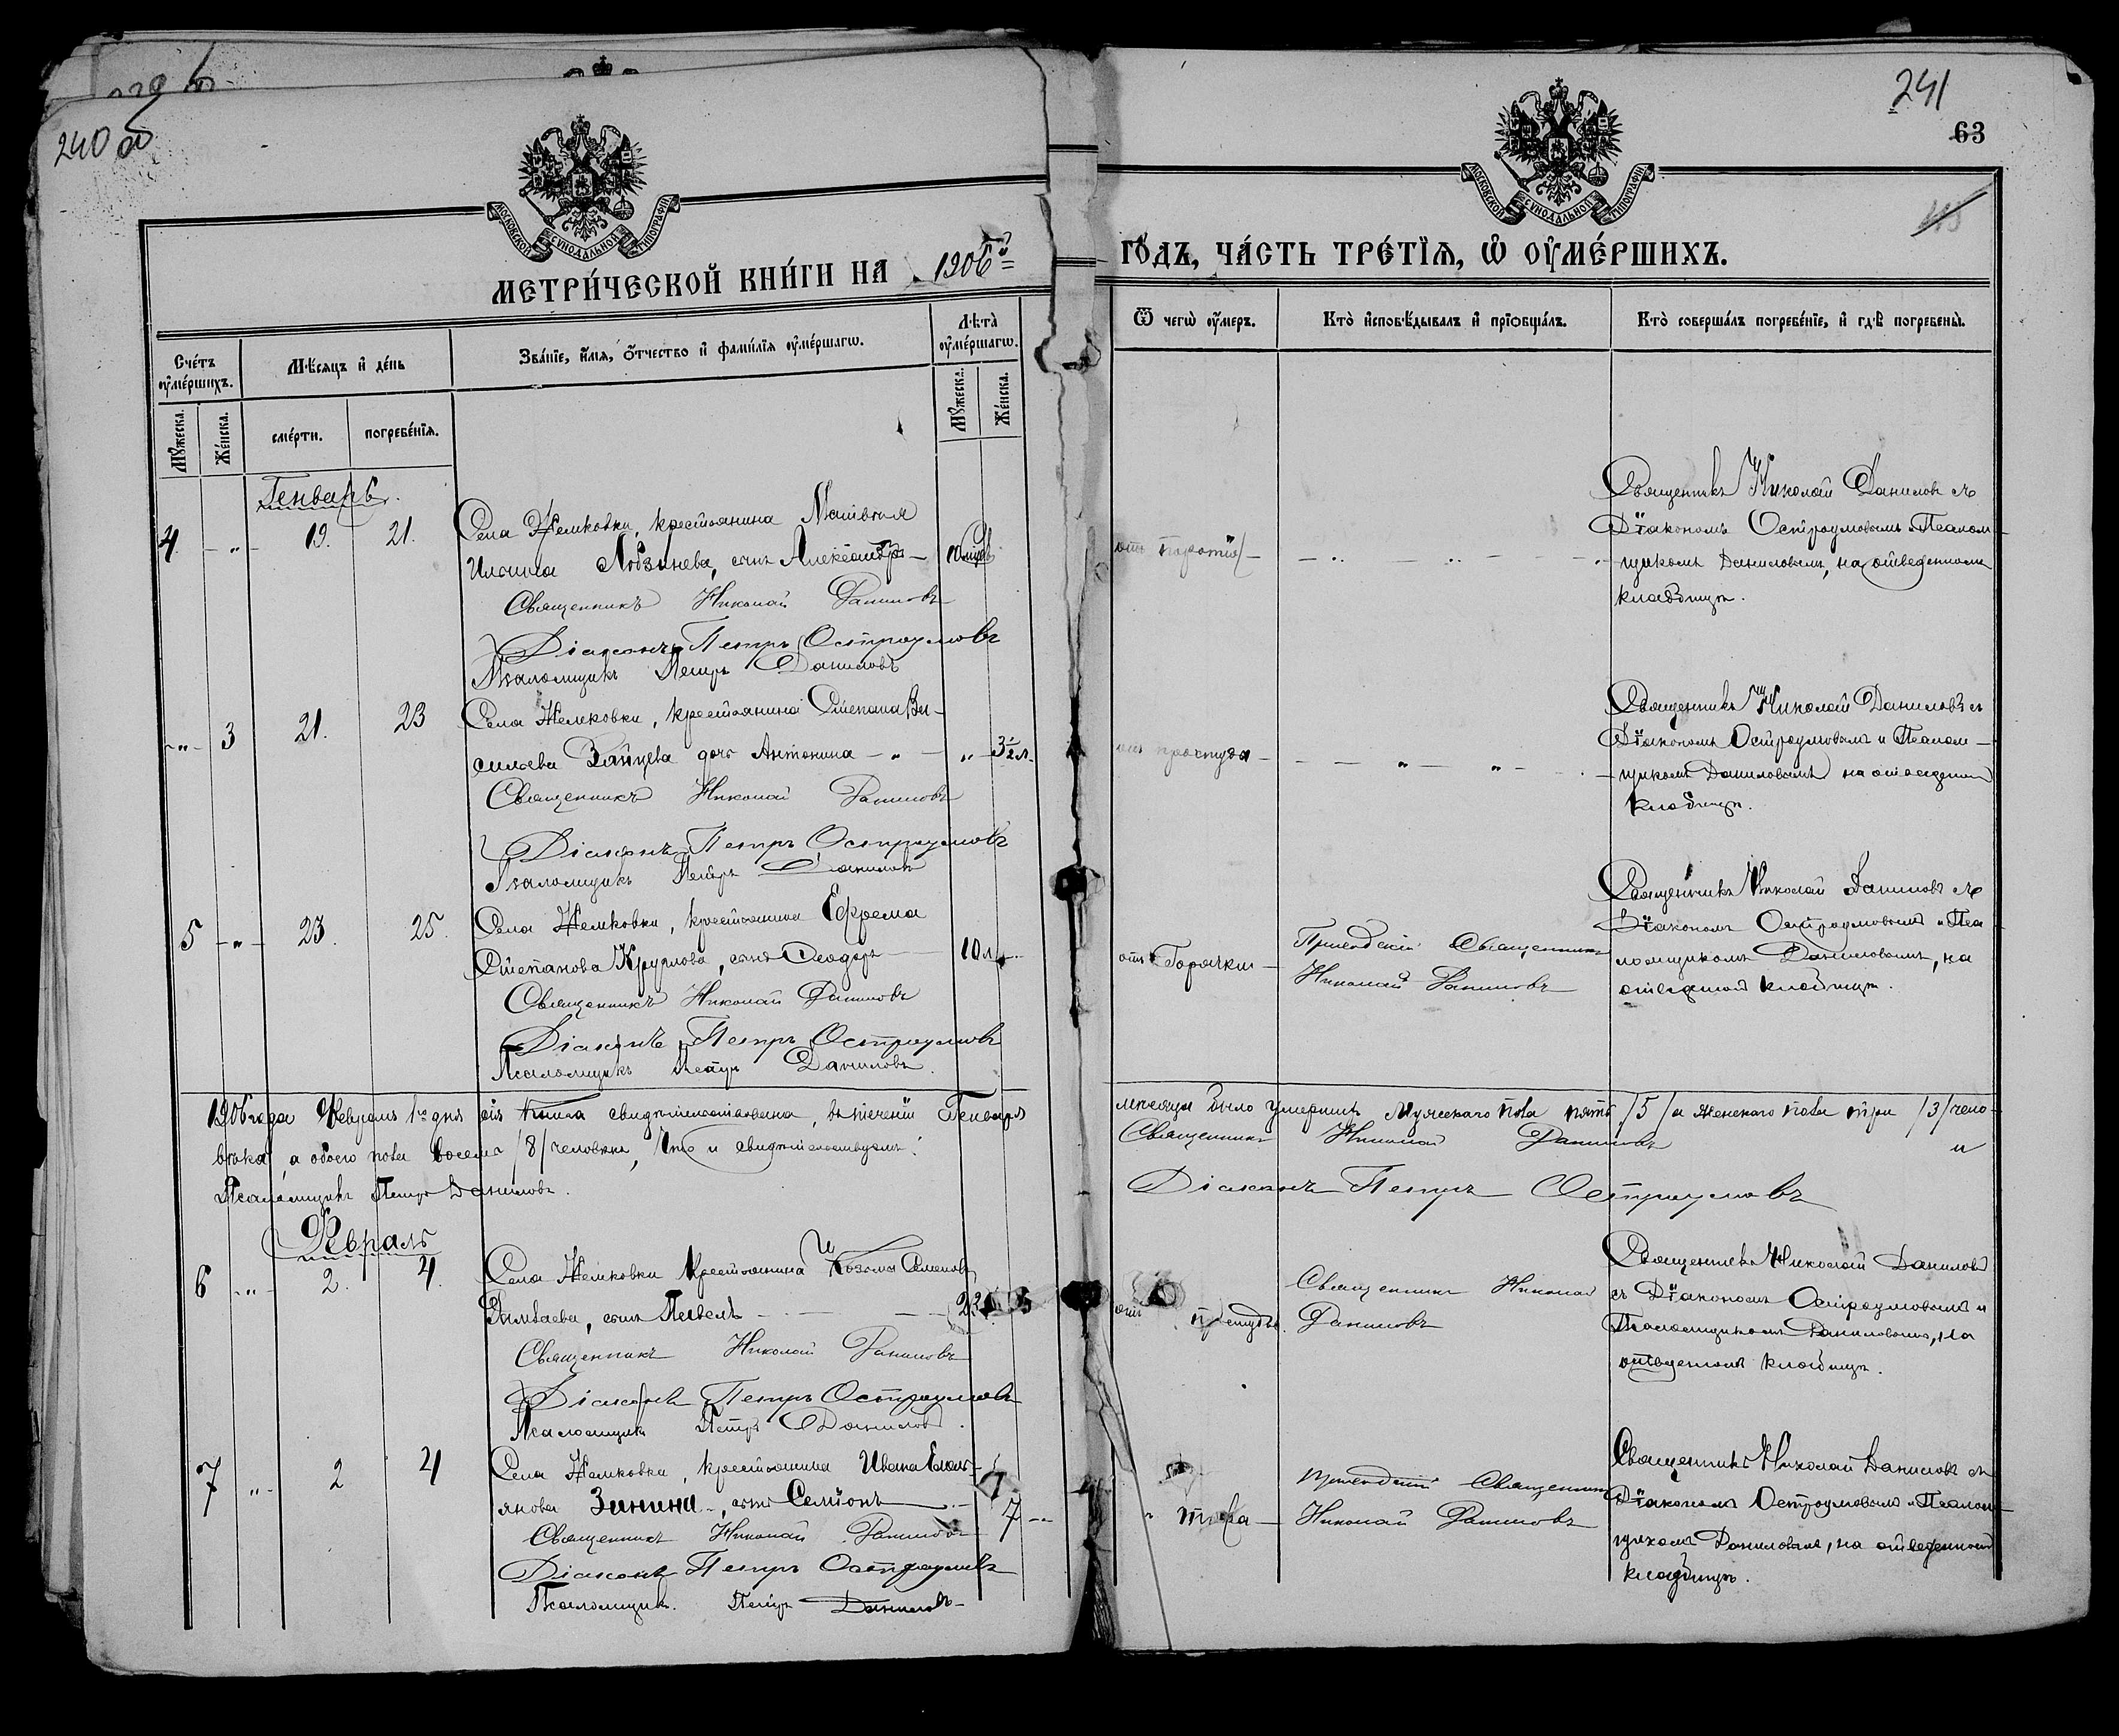 240 об
241
63
МОСКОВСКОЙ СѴНОДАЛЬНОЙ ТИПОГРАФІИ
МОСКОВСКОЙ СѴНОДАЛЬНОЙ ТИПОГРАФІИ
МЕТРИ́ЧЕСКОЙ КНИ́ГИ НА 1906й
ГО́ДЪ, ЧА́СТЬ ТРЕ́ТЇѦ, Ѡ҆ ОУ҆МЕ́РШИХЪ.
Сче́тъ оу҆ме́ршихъ.
Мѣ́сяцъ и҆ де́нь
Зва́нїе, и҆́мѧ, ѻ҆́тчество и҆ фами́лїѧ оу҆ме́ршагѡ.
Лѣта̀ оу҆ме́ршагѡ.
Ѿ чегѡ̀ оу҆́меръ.
Кто̀ и҆сповѣ́дывалъ и҆ прїѡбща́лъ.
Кто̀ соверша́лъ погребе́нїе, и҆ гдѣ̀ погребены̀.
Мꙋ́жеска.
Же́нска.
сме́рти.
погребе́нїѧ.
Мꙋ́жеска.
Же́нска.
Генварь.
4 - „ - 19. 21.
Села Жемковки, крестьянина Матвѣя
Ильина Лобзинева, сынъ Александръ —
Священникъ Николай Даниловъ
Діаконъ Петръ Остроумовъ
Псаломщикъ Петръ Даниловъ
Священникъ Николай Даниловъ съ
Дїакономъ Остроумовымъ и Псалом-
щикомъ Даниловымъ, на отведенномъ
кладбищѣ.
- „ - 3 21. 23
Села Жемковки, крестьянина Степана Ва-
сильева Зайцева дочь Антонина — „ — „ 3½ л.
Священникъ Николай Даниловъ
Діаконъ Петръ Остроумовъ
Псаломщикъ Петръ Даниловъ
отъ простуды —
Священникъ Николай Даниловъ съ
Дїакономъ Остроумовымъ и Псалом-
щикомъ Даниловымъ на отведенном
кладбищѣ.
5 - „ - 23. 25.
Села Жемковки, крестьянина Ефрема
Степанова Круглова, сынъ Ѳеодоръ — 10 л.
Священникъ Николай Даниловъ
Діаконъ Петръ Остроумовъ
Псаломщикъ Петръ Даниловъ.
отъ Горячки —
Приходскій Священникъ
Николай Даниловъ
Священникъ Николай Даниловъ съ
Дїакономъ Остроумовымъ и Пса
ломщикомъ Даниловымъ, на
отведенномъ кладбищѣ.
1906 года Февраля 1го дня сія книга свидѣтельствована, въ теченіи Генваря
мѣсяца было умершихъ Мужескаго пола пять /5/ а женскаго пола три /3/ чело-
вѣка, а обоего пола восемь /8/ человѣкъ, что и свидѣтельствуемъ:
Священникъ Николай Даниловъ
Псаломщикъ Петръ Даниловъ.
Діаконъ Петръ Остроумовъ
Февраль
6 - „ - 2. 4.
Села Жемковки Крестьянина Козьмы Семенова
сынъ Павелъ —
Священникъ Николай Даниловъ
Діаконъ Петръ Остроумовъ
Псаломщикъ Петръ Даниловъ.
отъ простуды.
Священникъ Николай
Даниловъ
Священникъ Николай Даниловъ
съ Дїакономъ Остроумовымъ и
Псаломщикомъ Даниловымъ, на
отведенномъ кладбищѣ.
7 „ - 2 4
Села Жемковки, крестьянина Ивана Емель-
янова Зинина, сынъ Семіонъ — 7
Священникъ Николай Даниловъ
Діаконъ Петръ Остроумовъ
Псаломщик. Петръ Даниловъ
Приходскій Священникъ
Николай Даниловъ
Священникъ Николай Даниловъ съ
Дїакономъ Остроумовымъ и Псалом-
щикомъ Даниловымъ, на отведенномъ
кладбищѣ.